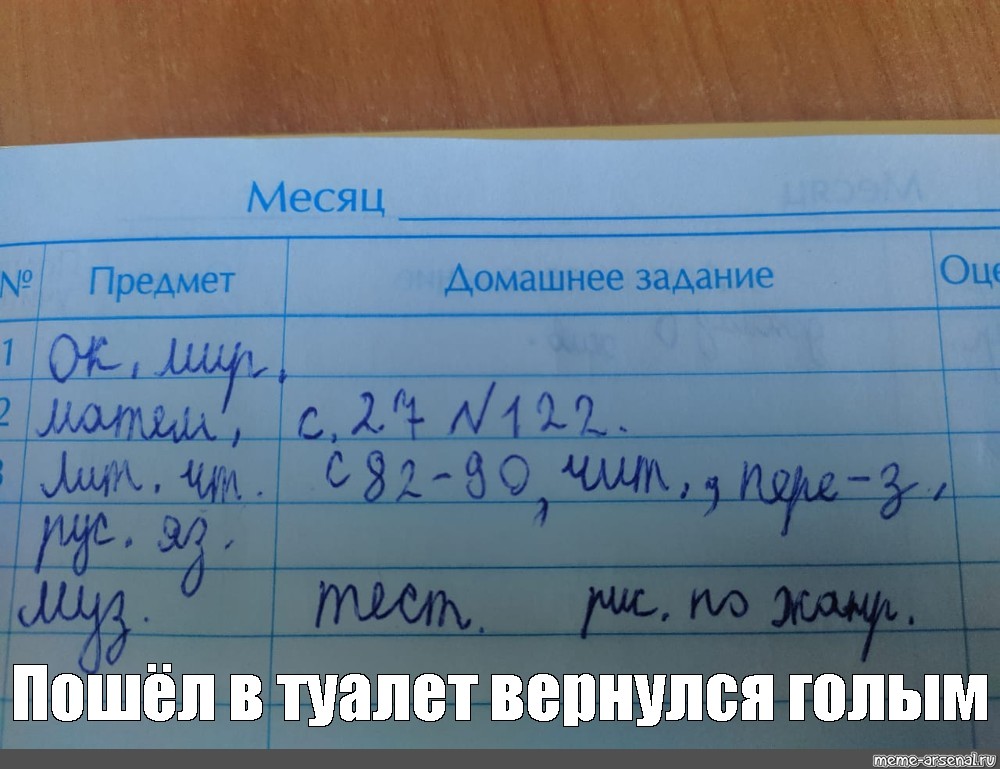 Месяц
№ Предмет Домашнее задание Оце
1 Ок, мир.
2 матем, с. 27 N 122.
3 лит. чт. с 82-90, чит., пере-з,
рус. яз.
муз. тест. рис. по жанр.
Пошёл в туалет вернулся голым
meme-arsenal.ru